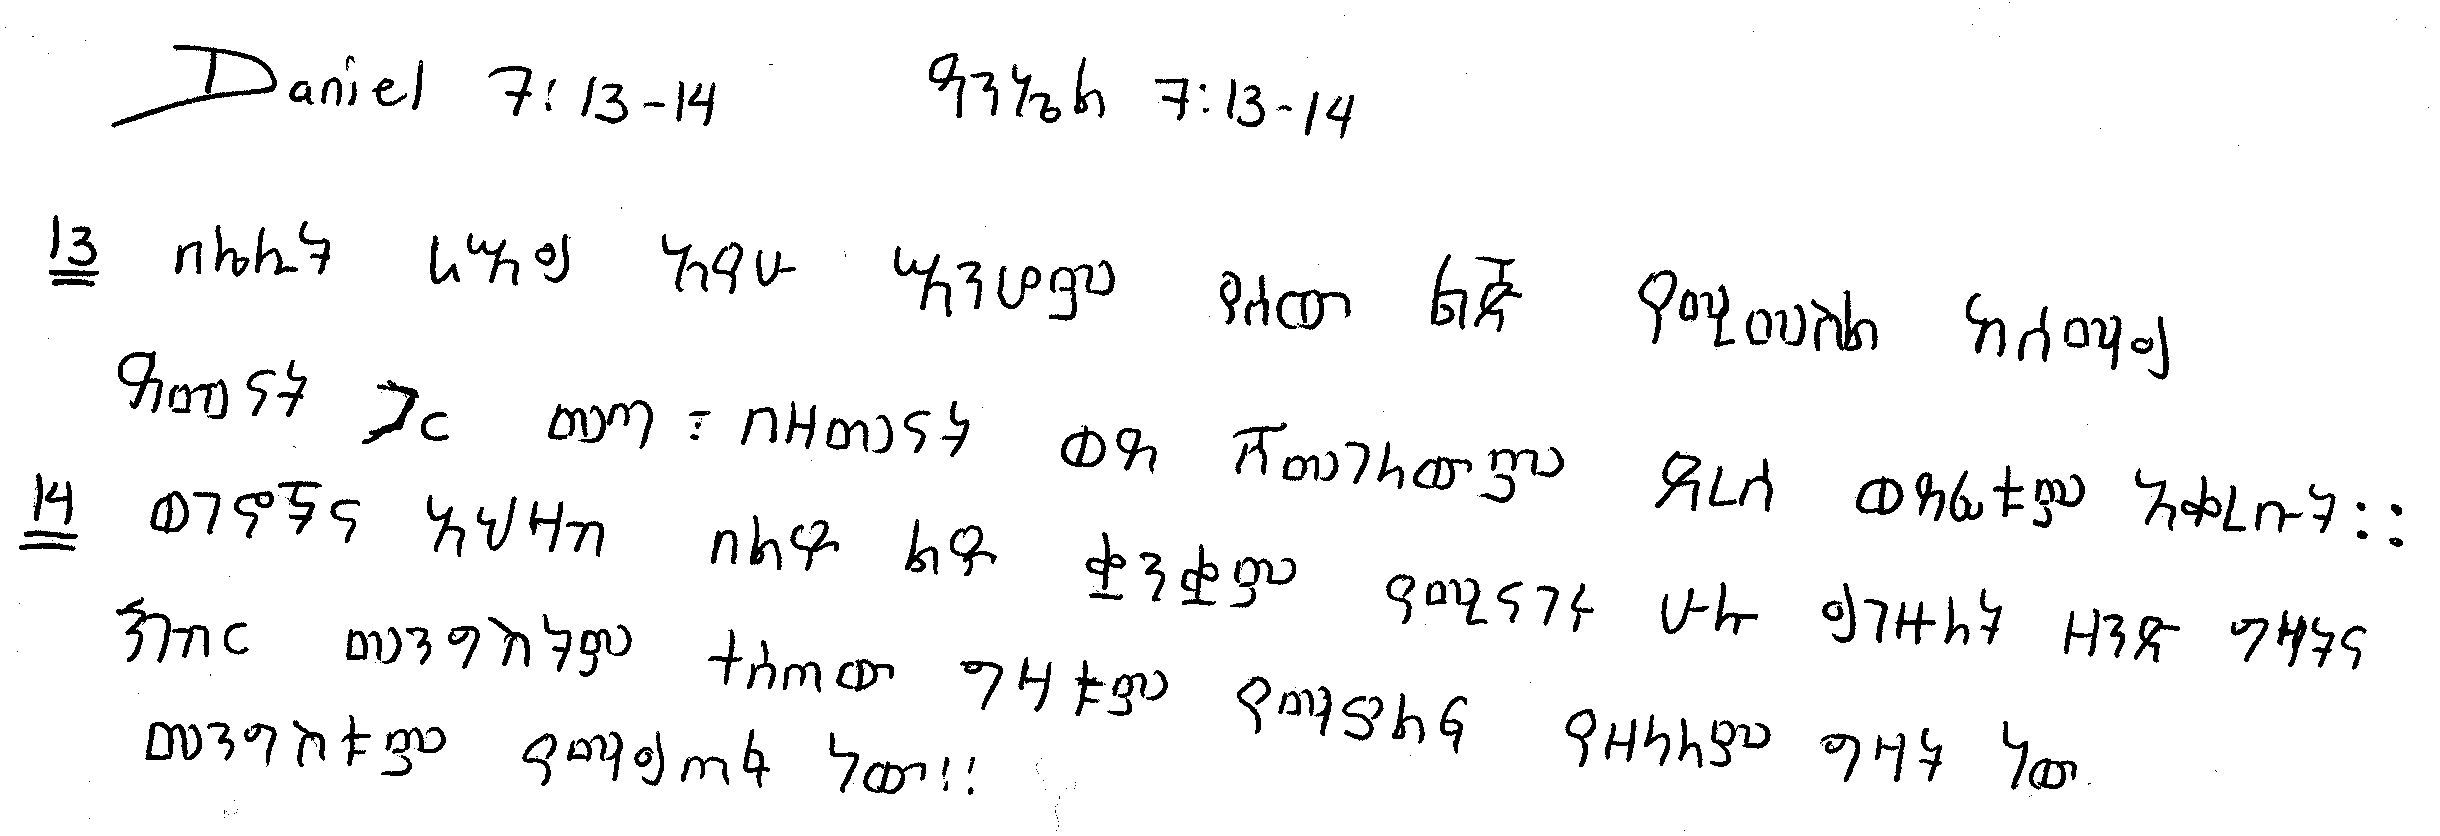 Daniel 7:13-14 ዳንኤል 7:13-14
13 በሌሊት ራእይ አየሁ እነሆም የሰው ልጅ የሚመስል ከሰማይ
ደመናት ጋር መጣ ፡ በዘመናት ወደ ሸመገለውም ደረሰ ወደፊቱም አቀረቡት፡፡
14 ወገኖችና አህዛብ በልዩ ልዩ ቋንቋም የሚናገሩ ሁሉ ይገዙለት ዘንድ ግዛትና
ክብር መንግሥትም ተሰጠው ግዛቱም የማያልፍ የዘላለም ግዛት ነው
መንግስቱም የማይጠፋ ነው!!